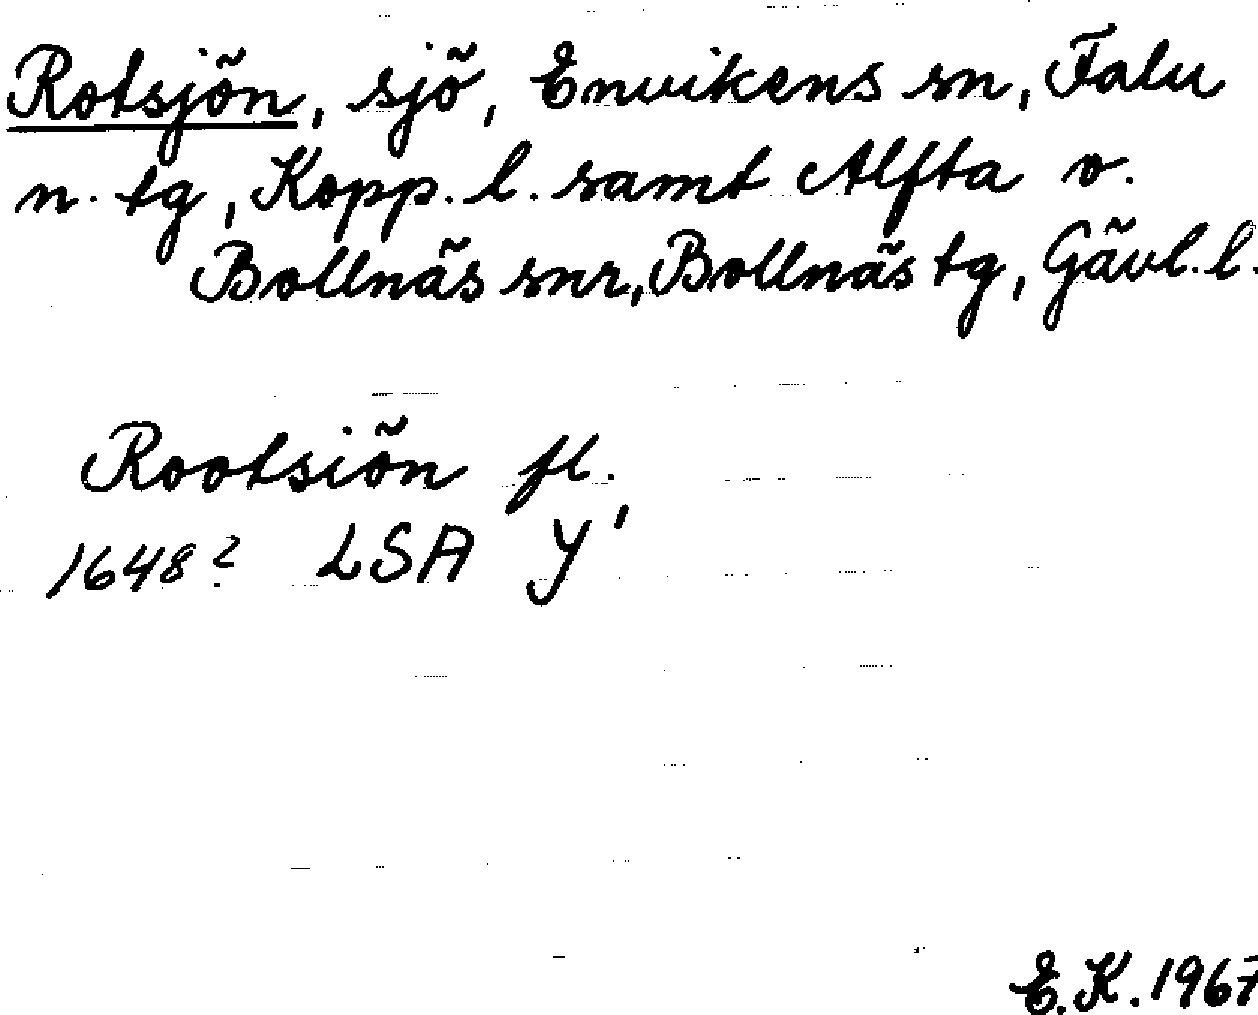 Rotsjön, sjö, Envikens sn, Falu
n. tg, Kopp. l. samt Alfta o.
Bollnäs snr, Bollnäs tg, Gävl. l.
Rootsiön fl.
1648? LSA Y'
E.K. 1967